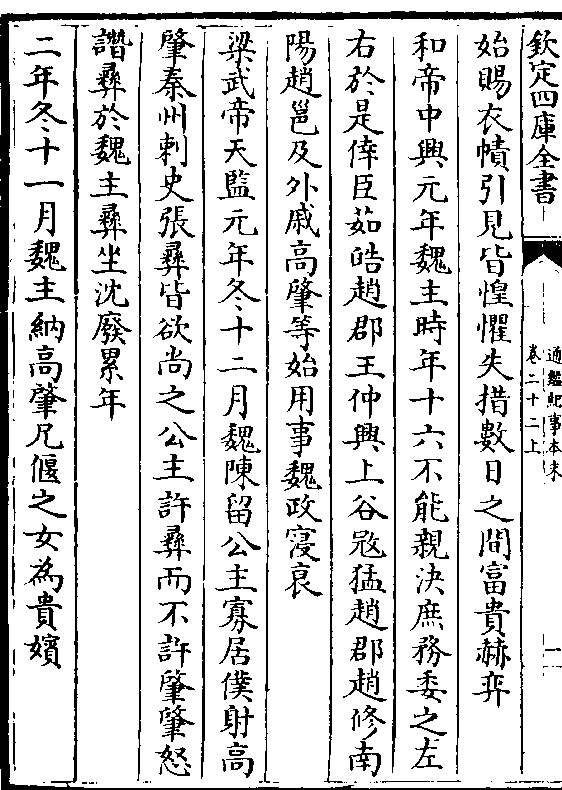 欽定四庫全書
通鑑紀事本末
卷二十二上
一
始賜衣幘引見皆惶懼失措數日之間富貴赫弈
和帝中興元年魏主時年十六不能親決庶務委之左
右於是倖臣茹皓趙郡王仲興上谷宼猛趙郡趙修南
陽趙邕及外戚高肇等始用事魏政寖衰
梁武帝天監元年冬十二月魏陳留公主寡居僕射高
肇秦州刺史張彝皆欲尚之公主許彝而不許肇肇怒
譖彝於魏主彝坐沈廢累年
二年冬十一月魏主納高肇兄偃之女為貴嬪